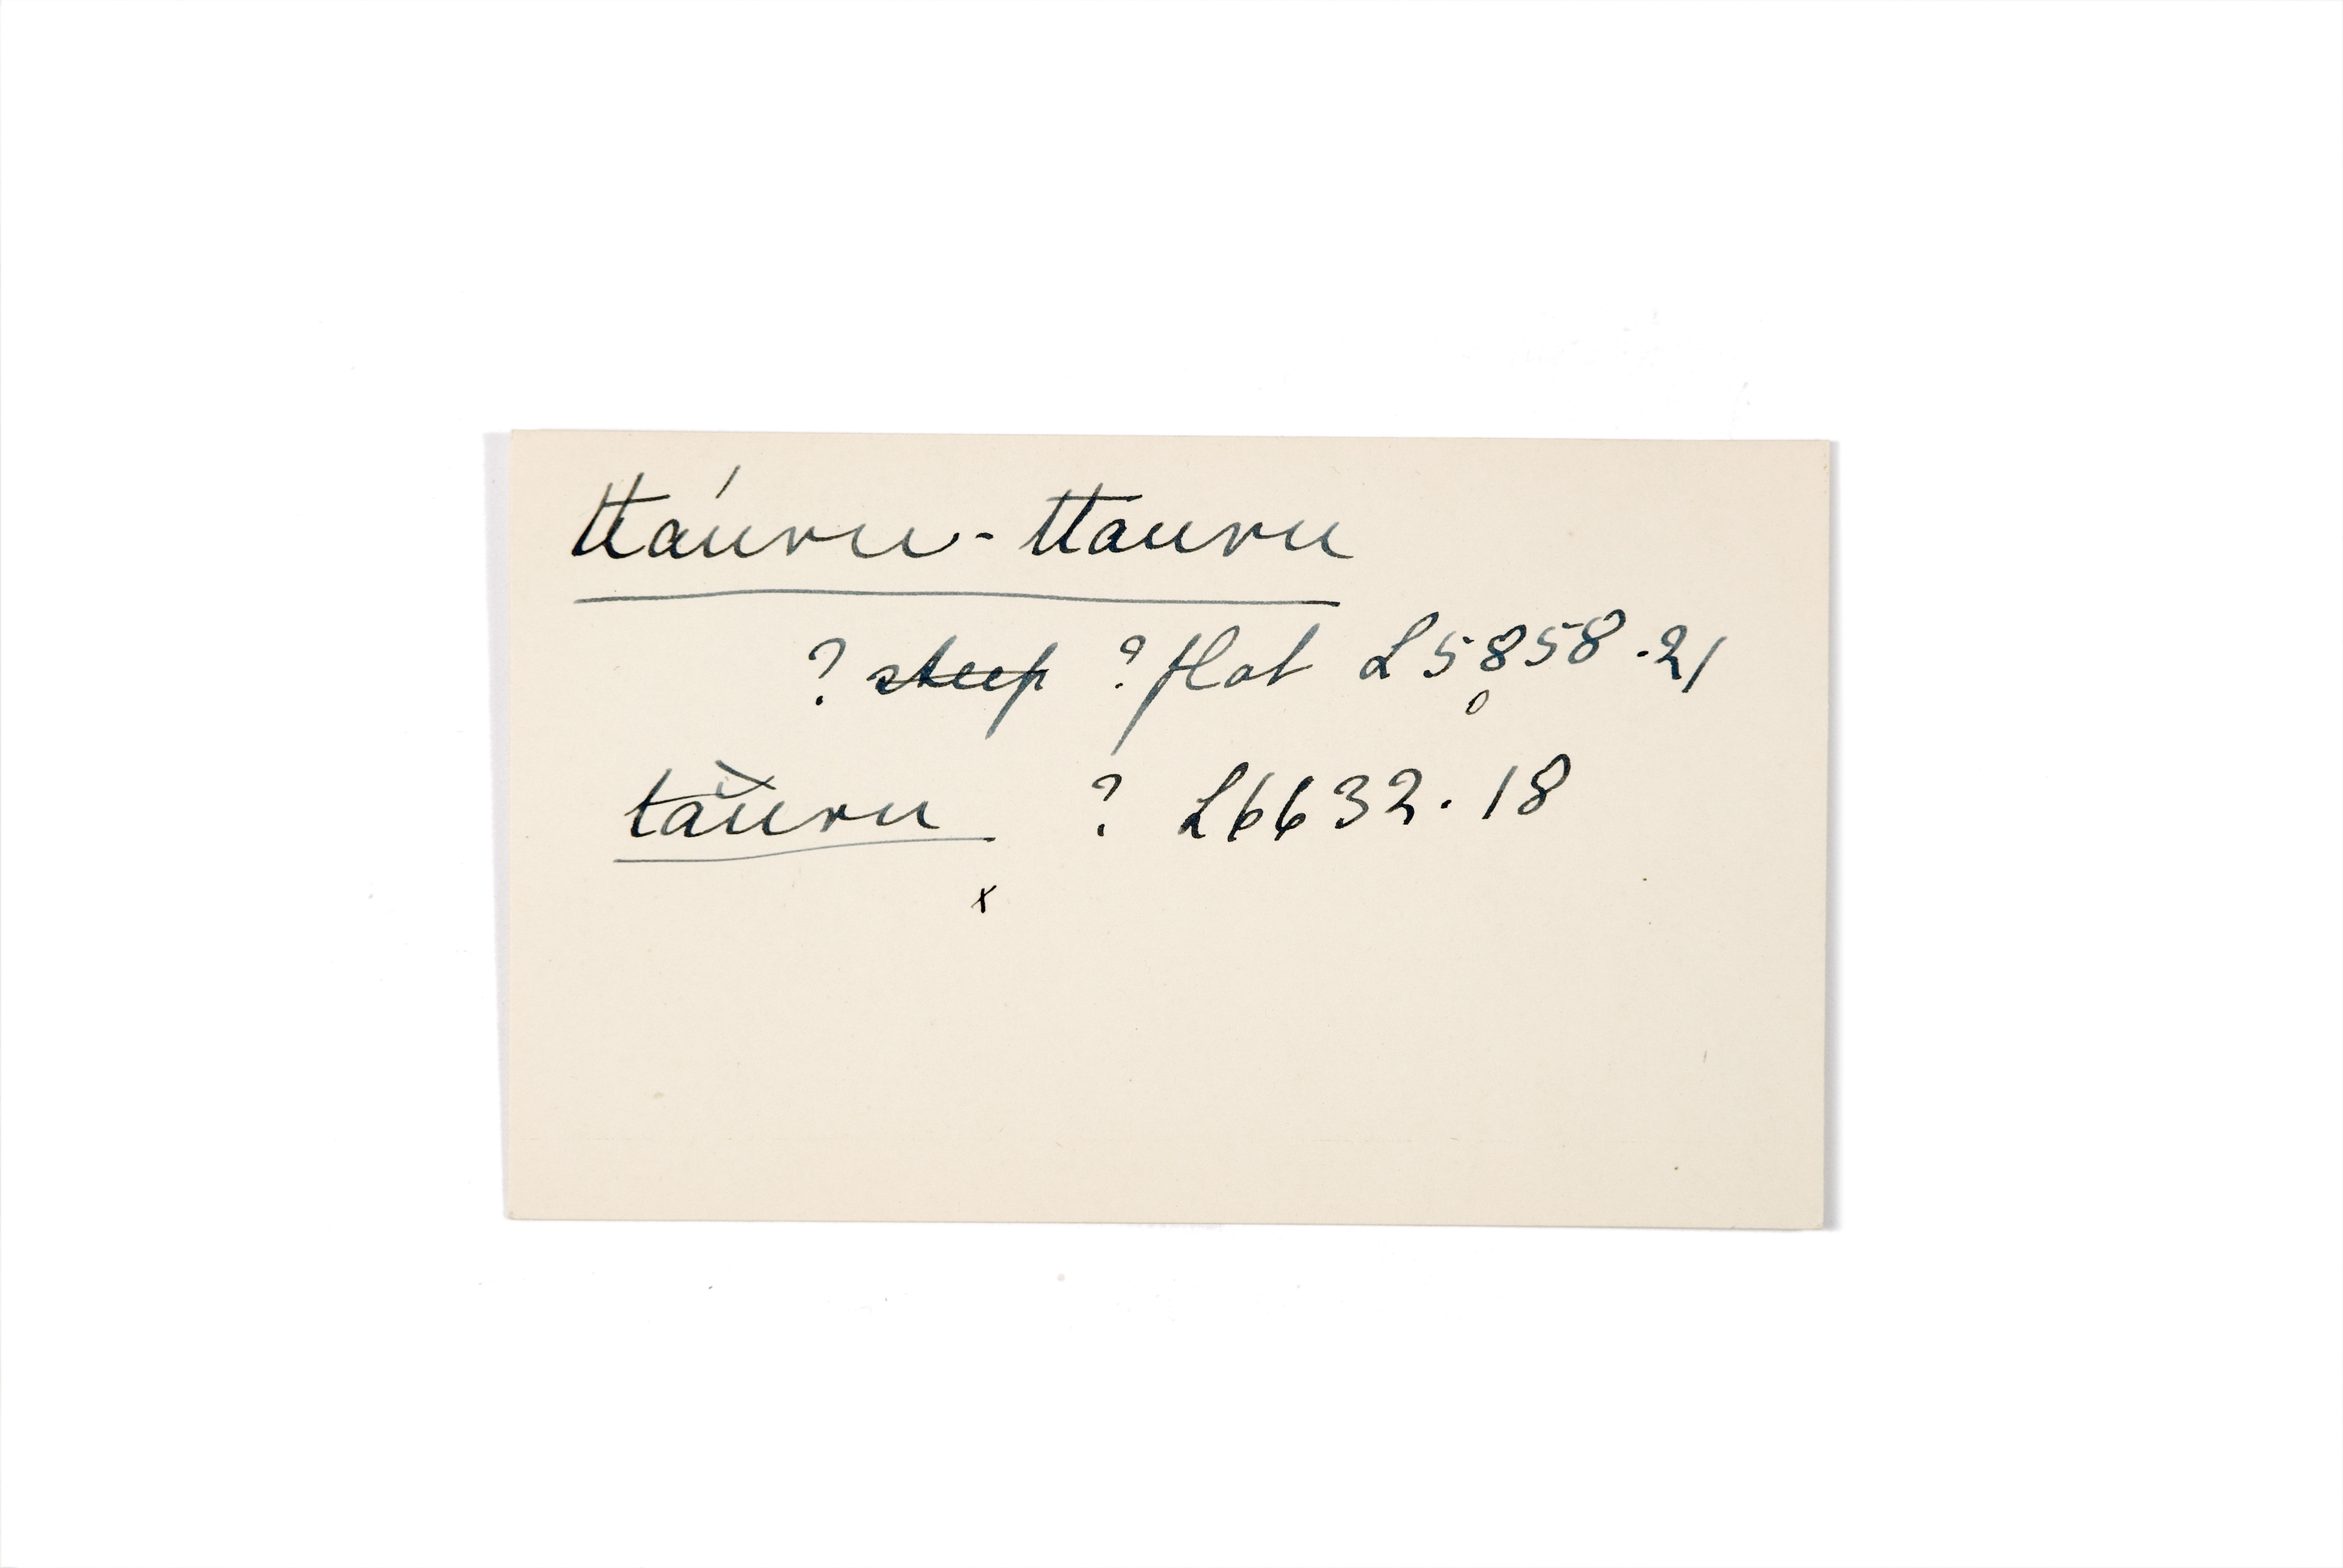 ttáuru-ttauru
? steep ? flat L5858.21
o
tàuru ? L6632.18
x